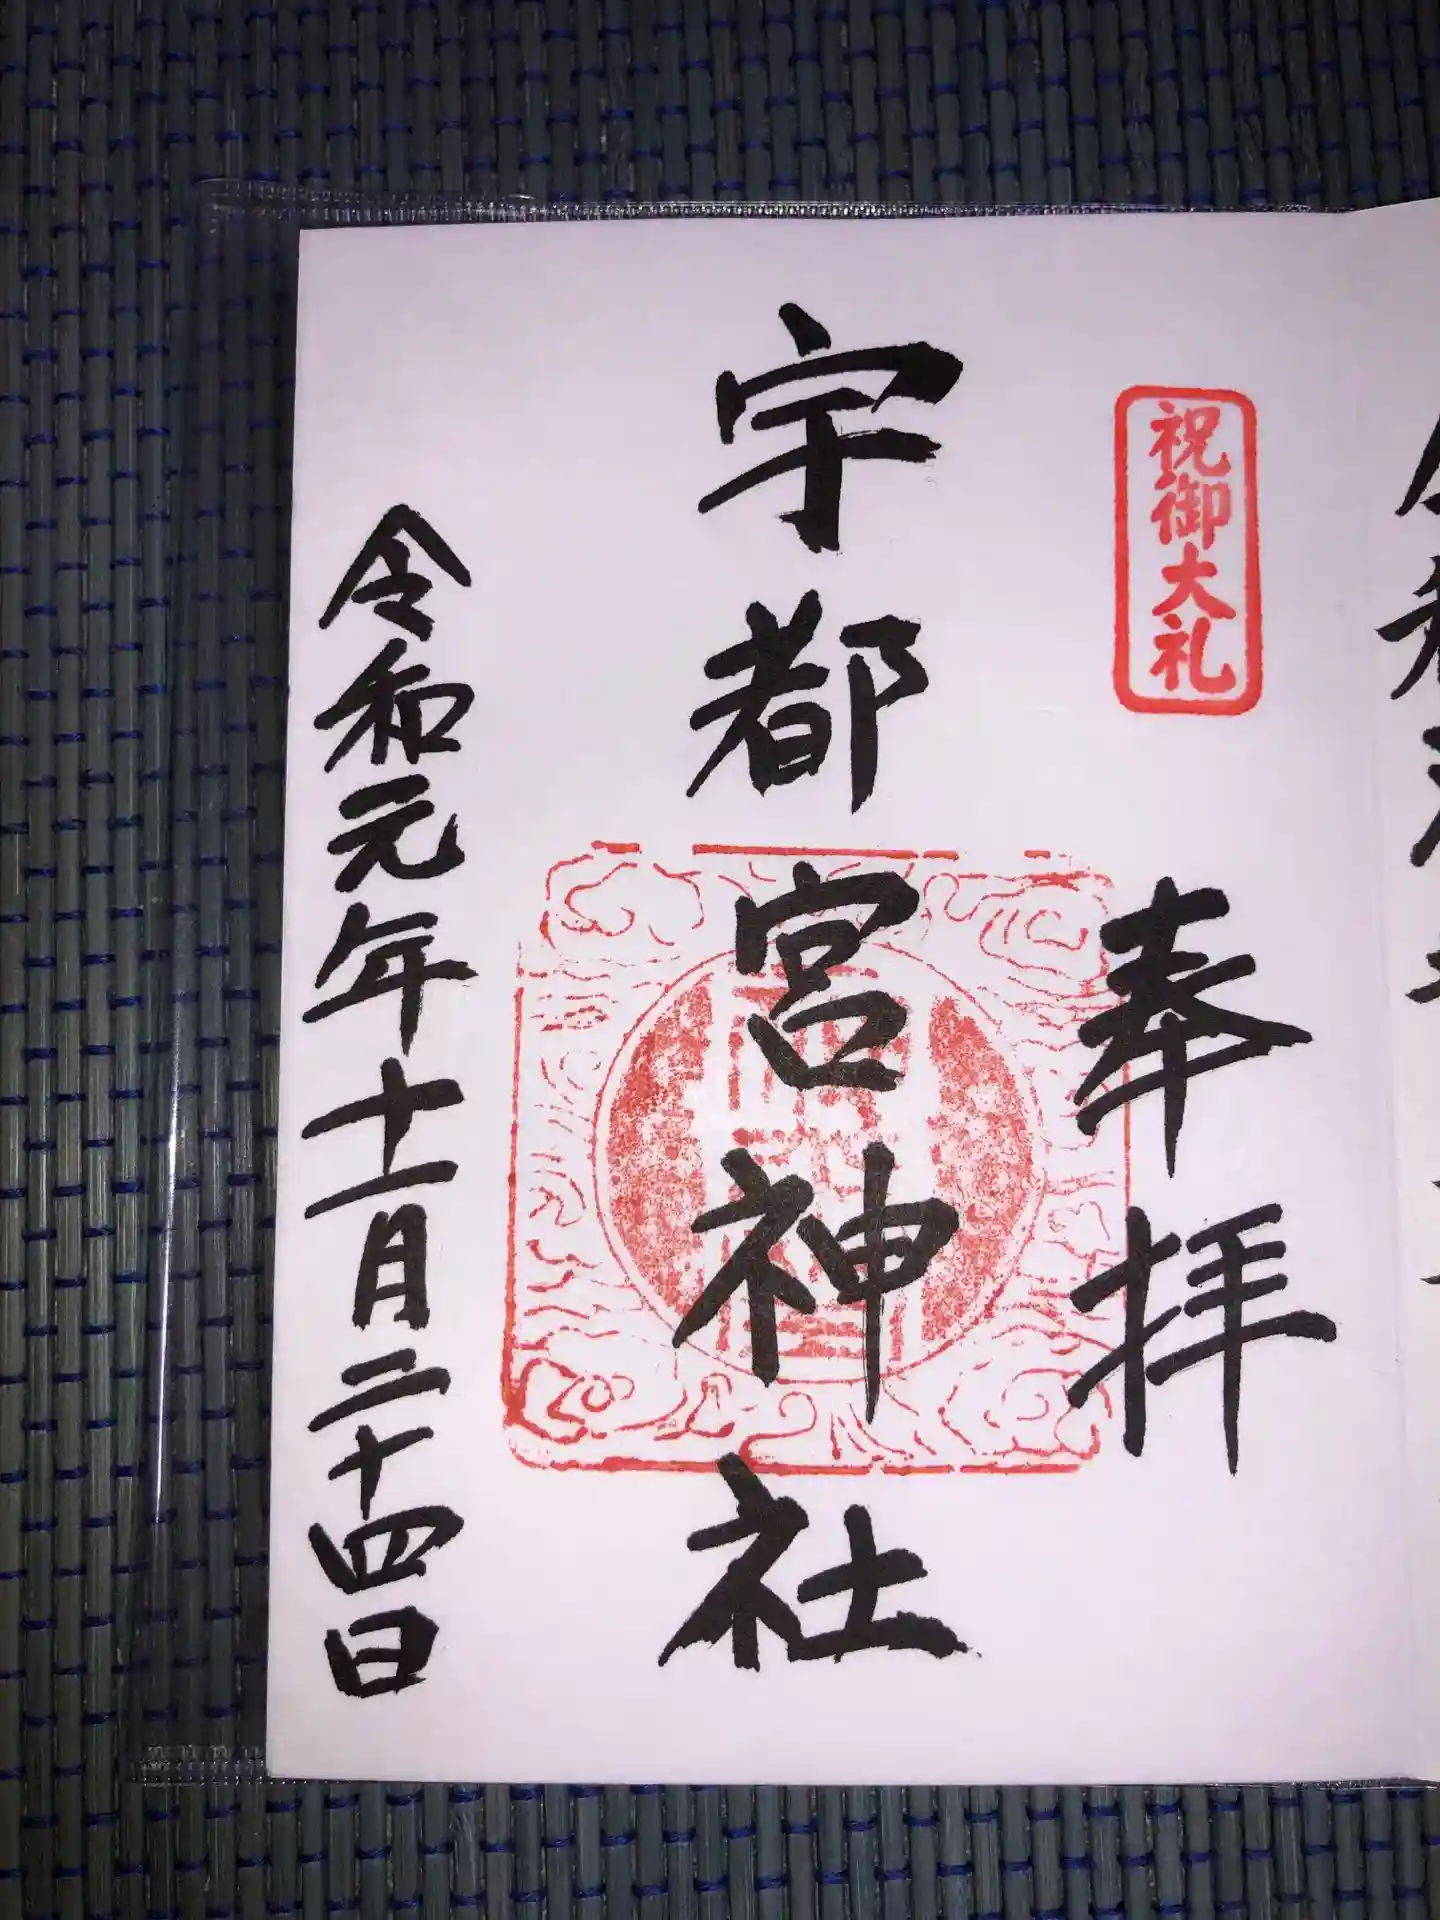 祝御大礼
奉拝
宇都宮神社
令和元年十一月二十四日